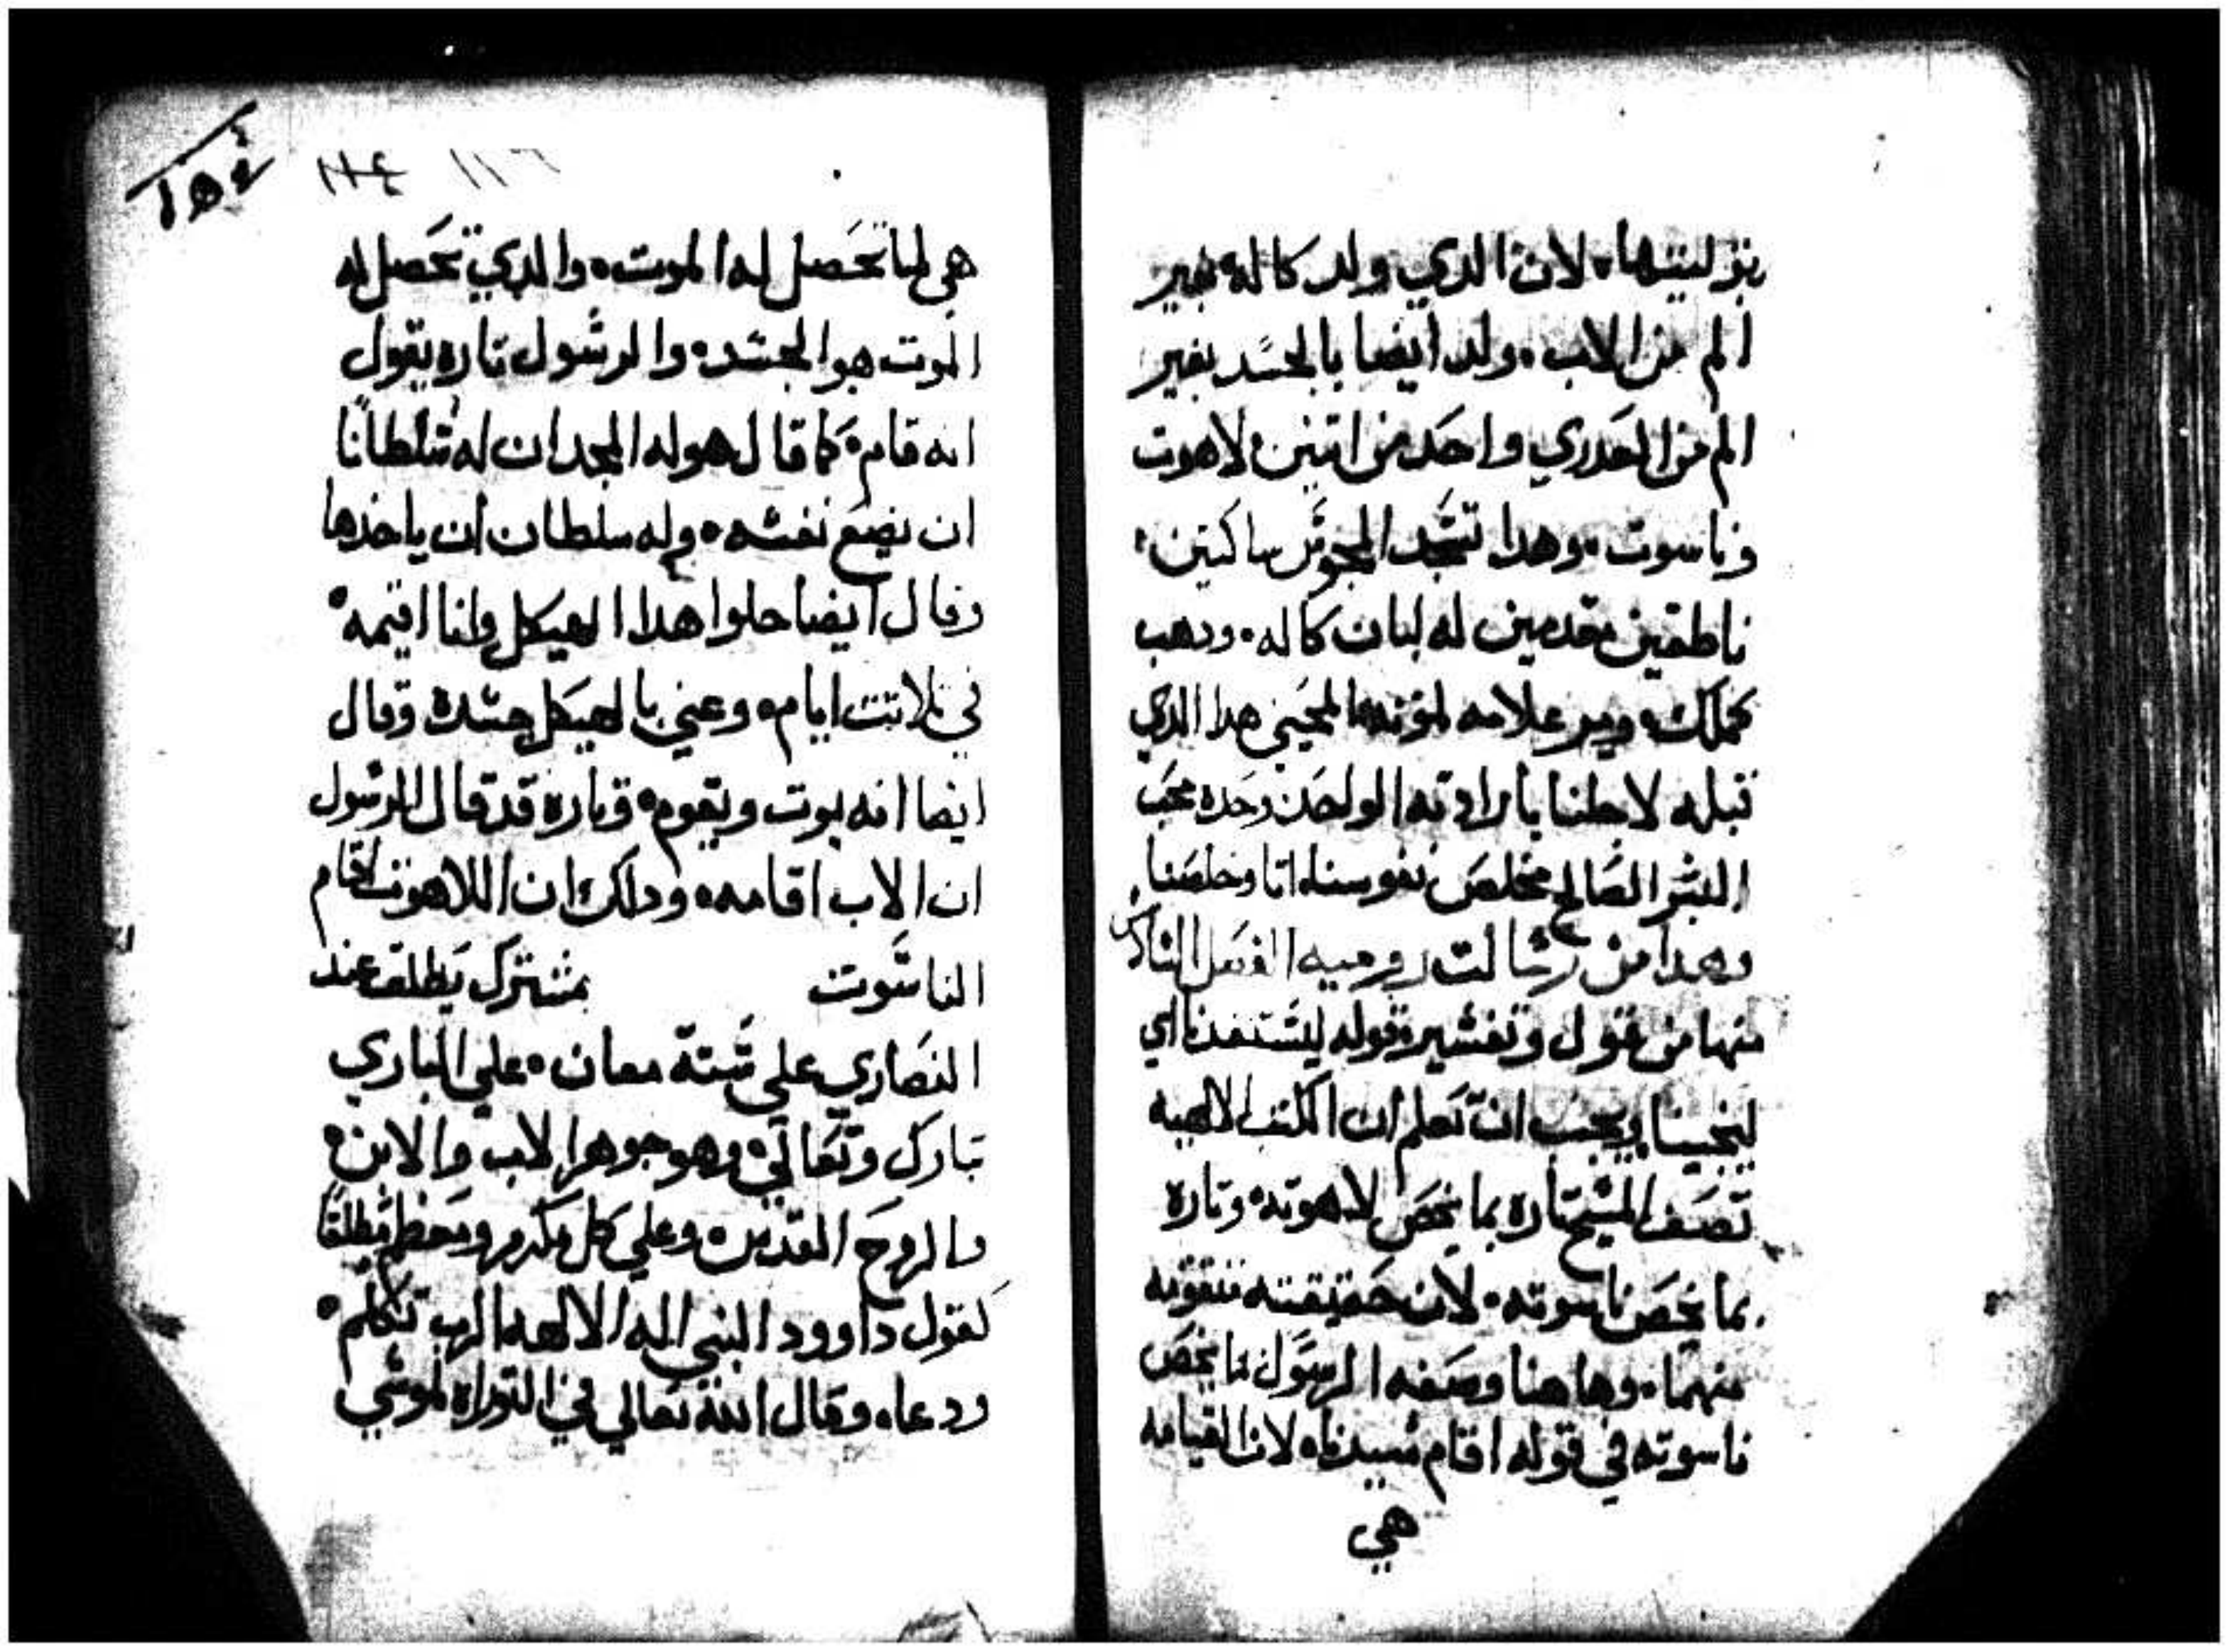 بتوليتها ۰ لان الدي ولد كاله بغير
الم من الاب ۰ ولد ايضا بالجسد بغير
الم من العدري واحد من اتنين لاهوت
وناسوت ۰ وهدا تسجد المجوس ساكتين
ناطقين مقدمين له لبان كاله ۰ ودهب
كملك ۰ ومر علامه لموته المحيي هدا الدي
قبله لاجلنا بارادته الواحد وحده محب
البشر الصالح مخلص نفوسنا اتا وخلصنا
وهدا من رسالت روميه الفصل
منها من قول وتفسير قوله ليستنقدنا اي
لينجينا ويجب ان تعلم ان الكتب الالهيه
تصف المسيح تاره بما يخص لاهوته وتاره
بما يخص ناسوته ۰ لان حقيقته متقومه
منهما ۰ وهاهنا وصفه الرسول بما يخص
ناسوته في قوله اقام سيدنا ۰ لان القيامه
هي
١٥٤
١١٤ ١١٦
هي لما تحصل له الموت ۰ والدي تحصل له
الموت هو الجسد ۰ والرسول تاره يقول
انه قام ۰ كما قال هو له المجد ان له سلطانا
ان يضع نفسه ۰ وله سلطان ان ياخدها
وقال ايضا حلوا هدا الهيكل وانا اقيمه ۰
في تلاتت ايام ۰ وعني بالهيكل جسده وقال
ايضا انه يموت ويقوم ۰ وتاره قد قال الرسول
ان الاب اقامه ۰ ودلك ان اللاهوت اقام
الناسوت مشترك يطلق عند
النصاري علي ستة معان ۰ علي الباري
تبارك وتعالي ۰ وهو جوهر الاب والابن ۰
والروح القدس ۰ وعلي كل مكرم ومعظم مطلقا
كقول داوود النبي اله الالهه الرب تكلم ۰
ودعا ۰ وقال الله تعالي في التوراه لموسي